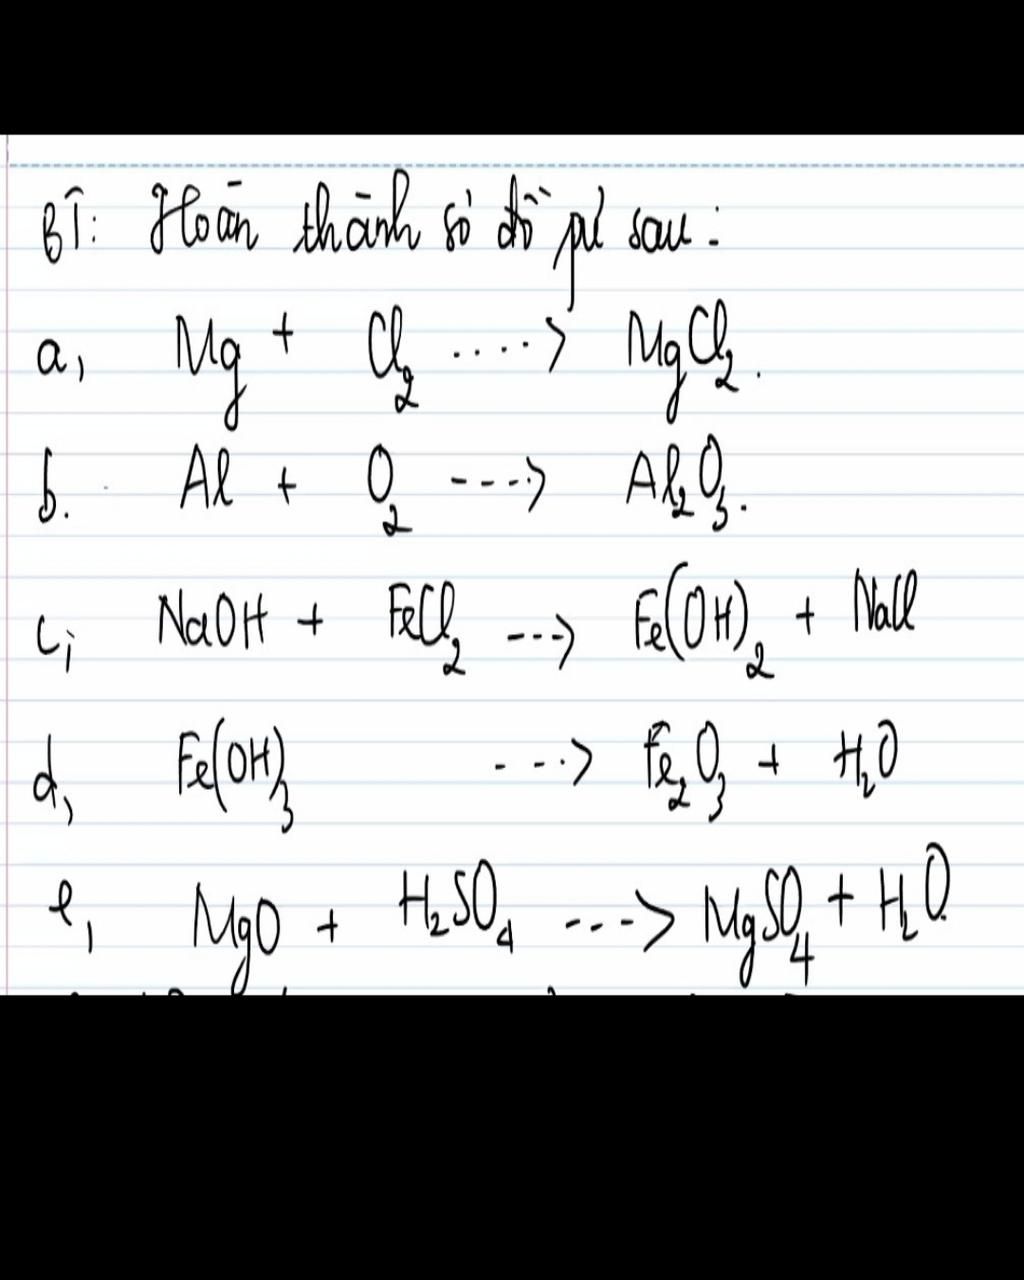 BT: Hoàn thành sơ đồ pư sau:
a, Mg + Cl₂ ....> MgCl₂.
b. Al + O₂ ---> Al₂O₃.
c, NaOH + FeCl₂ ---> Fe(OH)₂ + NaCl
d, Fe(OH)₃ ---> Fe₂O₃ + H₂O
e, MgO + H₂SO₄ ---> MgSO₄ + H₂O